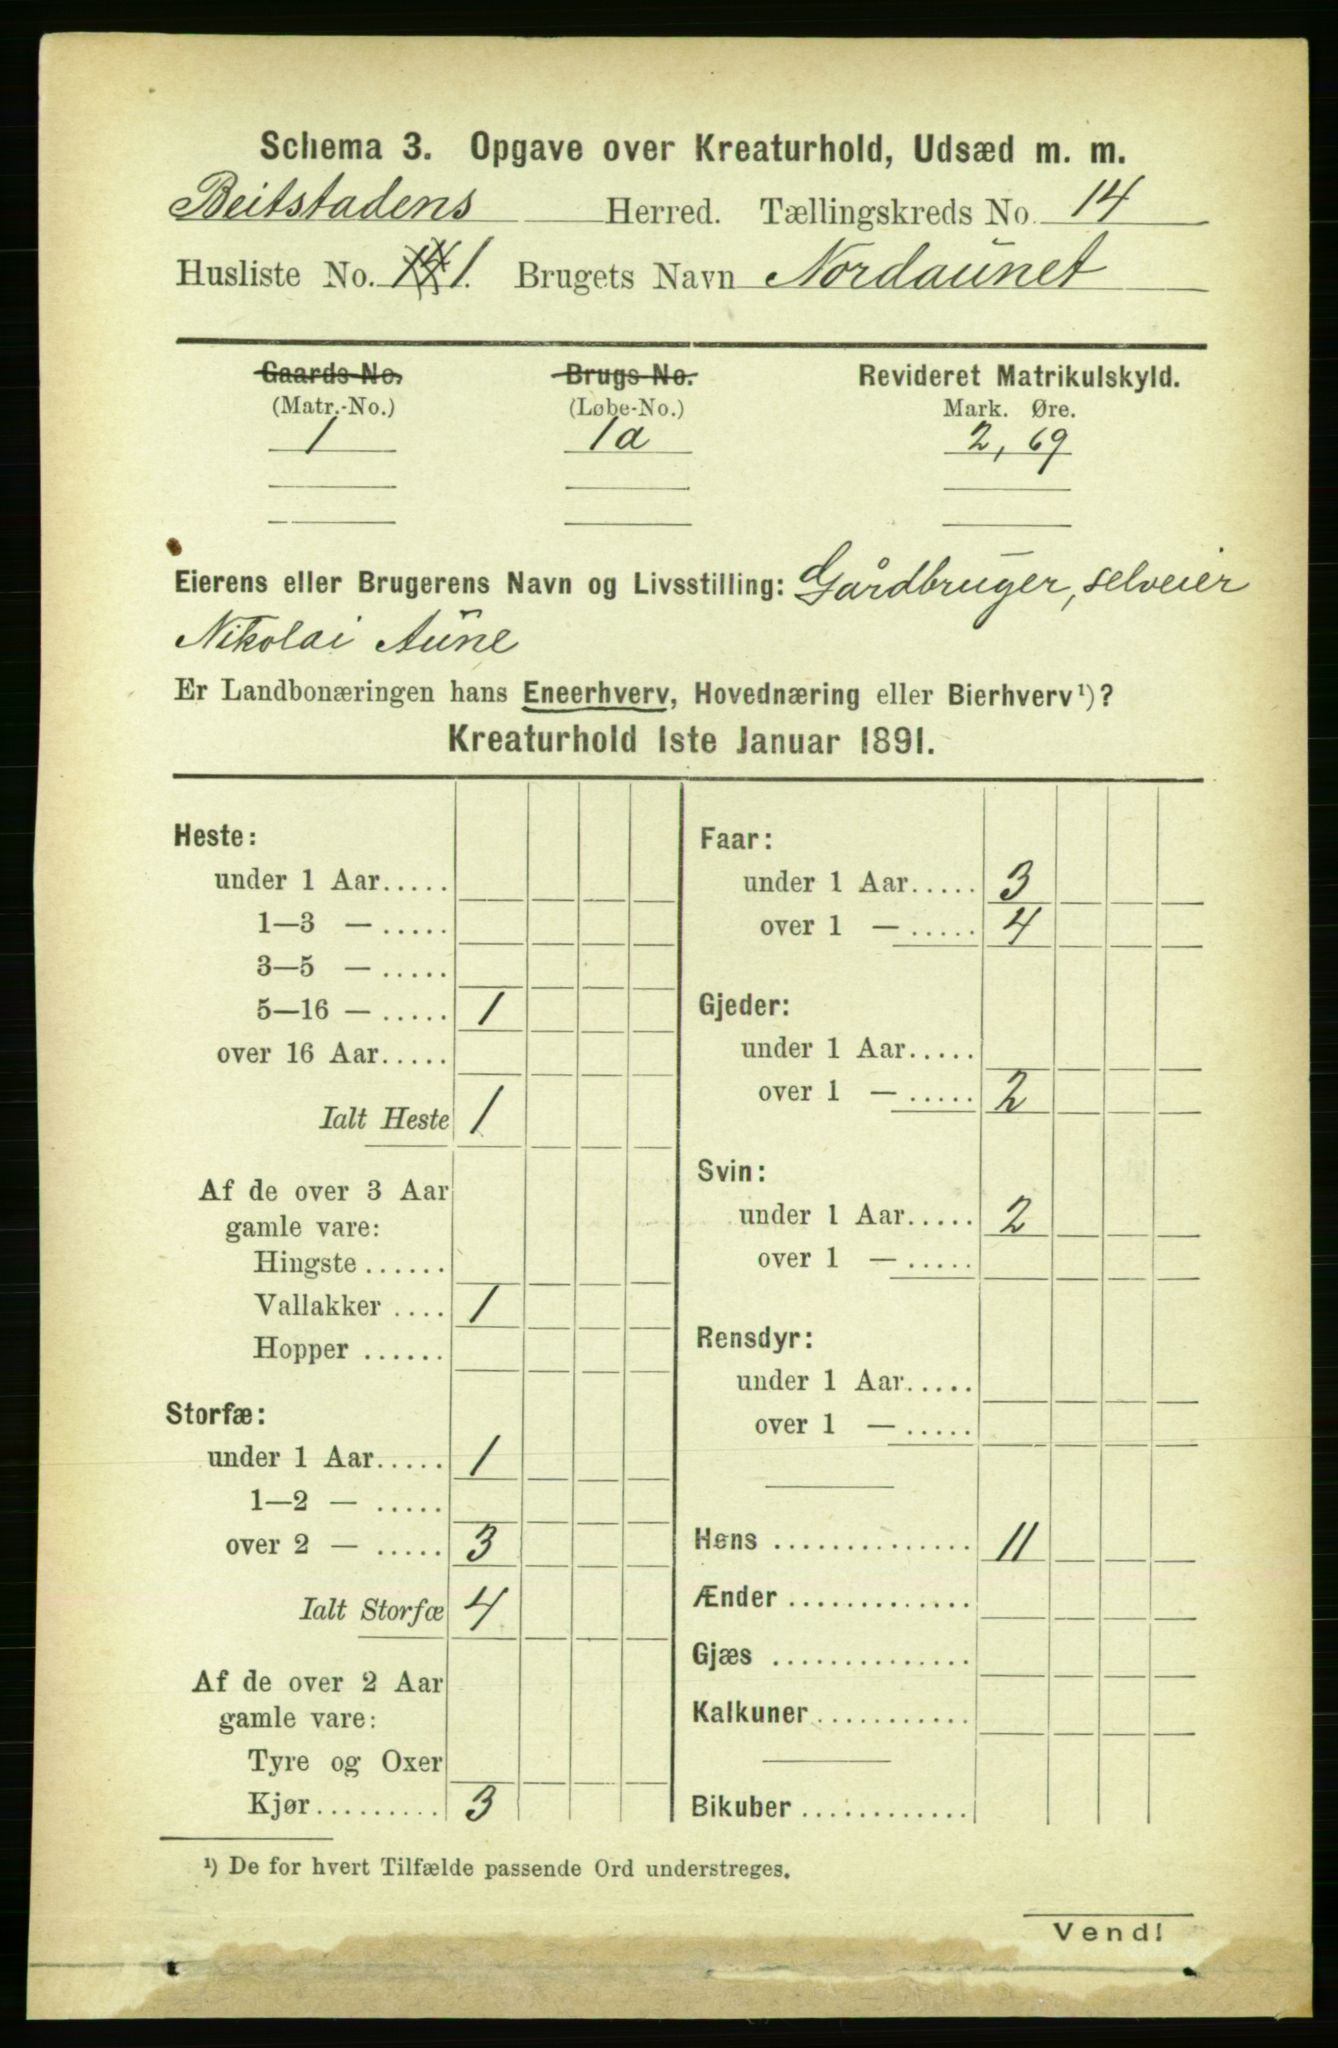 Schema 3. Opgave over Kreaturhold, Udsæd m. m.
Beitstadens Herred. Tællingskreds No. 14
Husliste No. 14 1. Brugets Navn Nordaunet
Gaards No. Brugs No. Revideret Matrikulskyld.
(Matr.-No.) (Løbe-No.) Mark. Øre.
1 1a 2, 69
Eierens eller Brugerens Navn og Livsstilling: Gårdbruger, selveier
Nikolai Aune
Er Landbonæringen hans Eneerhverv, Hovednæring eller Bierhverv¹)?
Kreaturhold 1ste Januar 1891.
Heste:
under 1 Aar.....
1—3 — .....
3—5 — .....
5—16 — ..... 1
over 16 Aar.....
Ialt Heste 1
Af de over 3 Aar
gamle vare:
Hingste ......
Vallakker .... 1
Hopper ......
Storfæ:
under 1 Aar..... 1
1—2 — .....
over 2 — ..... 3
Ialt Storfæ 4
Af de over 2 Aar
gamle vare:
Tyre og Oxer
Kjør.......... 3
Faar:
under 1 Aar..... 3
over 1 — ..... 4
Gjeder:
under 1 Aar.....
over 1 — ..... 2
Svin:
under 1 Aar..... 2
over 1 — .....
Rensdyr:
under 1 Aar.....
over 1 — .....
Høns .............. 11
Ænder .............
Gjæs ..............
Kalkuner...........
Bikuber ............
¹) De for hvert Tilfælde passende Ord understreges.
Vend!